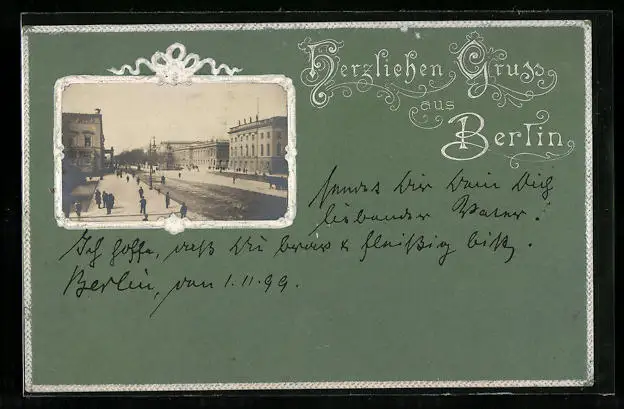 Herzlichen Gruss
aus
Berlin
sendet Dir Dein Dich
liebender Vater.
Ich hoffe, daß Du brav & fleißig bist.
Berlin, den 1.11.99.